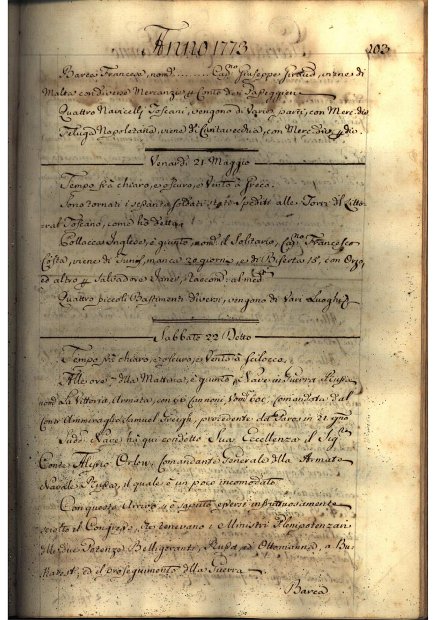 Anno 1773
203
Barca Francese, nom. ......... Cap.no Giuseppe Giraud, viene di
Malta con diverse Mercanzie p Conto dei Passeggieri
Quattro Navicelli Toscani, vengono di Varie parti, con Merc. div.
Feluga Napoletana, viene di Civitavecchia, con Merc. div. p div.
Venardì 21 Maggio
Tempo frà chiaro, e oscuro, e Vento à Greco.
Sono tornati i Soldati spediti alle Torri del Litto-
ral Toscano, come hò detto
Pollacca Inglese, è giunta nom. il Solitario, Cap.no Francesco
Costa, viene di Tunis, manca 20 giorni, e di Biserta 15, con Orzo,
ed altro p Salvadore
Quattro piccoli Bastimenti diversi, vengono di Vari Luoghi
Sabbato 22 Detto
Tempo frà chiaro, e oscuro, e Vento à Scilocco.
Alle ore 7 della Mattina, è giunta Nave in Guerra Russa
nom. La Vittoria, Armata con 60 Cannoni Comandata dal
Cont' Ammeraglio Samuel Greigh, procedente da Paros in 21 gno
Sud.a Nave hà qui condotto Sua Eccellenza il Sig.r
Conte Alessio Orlow, Comandante Generale della Armata
Navale Russa, il quale è un poco incomodato
Con questo Arrivo si è saputo essersi infruttuosamente
sciolto il Congresso, che tenevano i Ministri Plenipotenziari
delle due Potenze Belligeranti, Russa, ed Ottomanna, a Bu-
karest, ed il proseguimento della Guerra
Barca